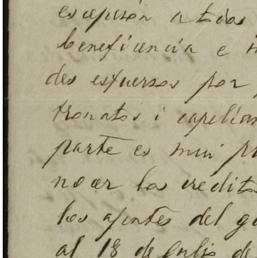 escepcion a todas
beneficencia e i
des esfuersos por
tronatos i capellan
parte es mui p
nocer los credito
los apuntes del g
al 18 de Julio de